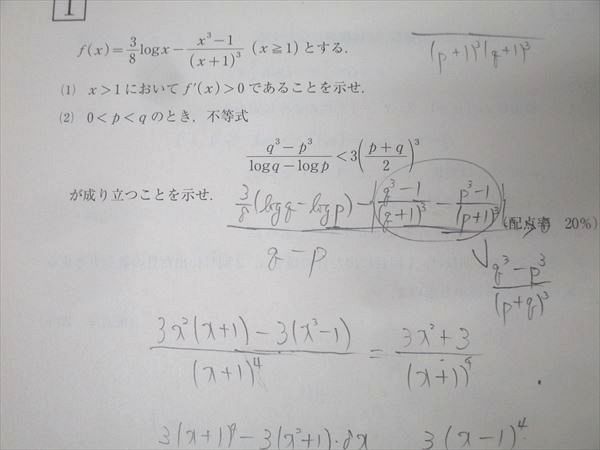 1
f(x)=3/8 log x − (x³−1)/(x+1)³ (x≧1)とする.
(p+1)³(q+1)³
(1) x>1においてf′(x)>0であることを示せ.
(2) 0<p<qのとき,不等式
(q³−p³)/(log q−log p)<3((p+q)/2)³
が成り立つことを示せ.
(3/8(log q−log p)−{(q³−1)/(q+1)³−(p³−1)/(p+1)³})/(q−p)
20%)
(q³−p³)/(p+q)³
(3x²(x+1)−3(x³−1))/(x+1)⁴ = (3x²+3)/(x+1)⁴
3(x−1)⁴